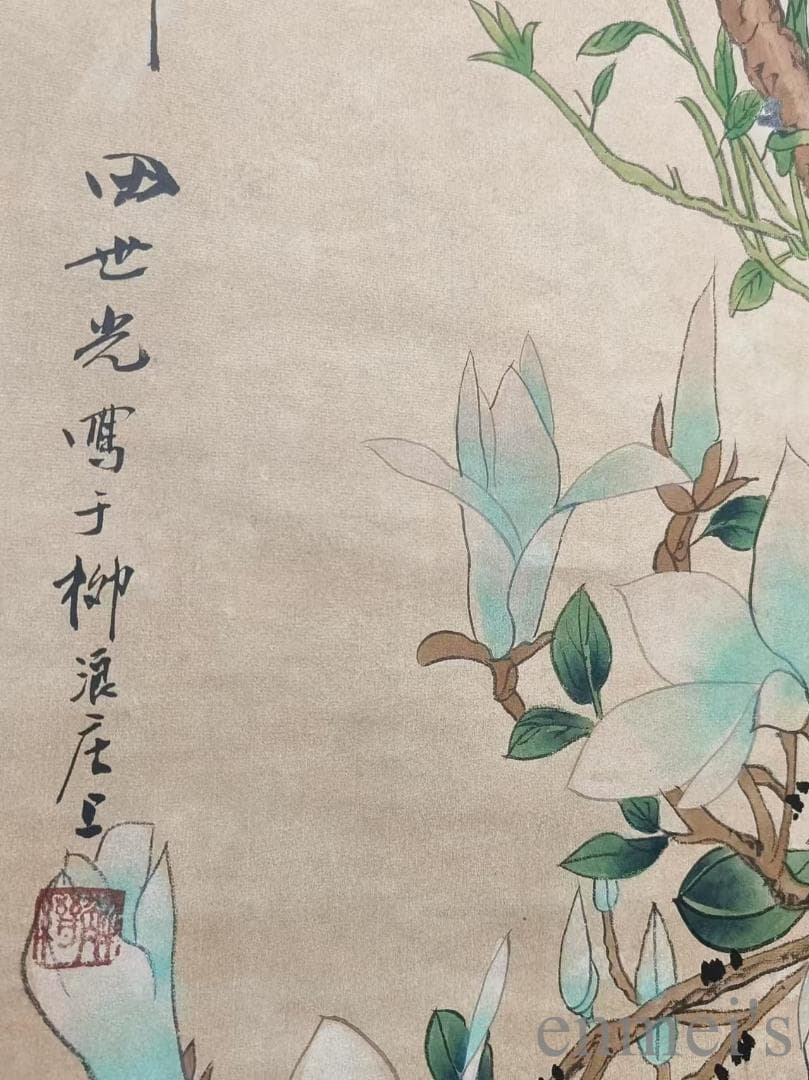 田世光寫于柳浪庄上
enmei's